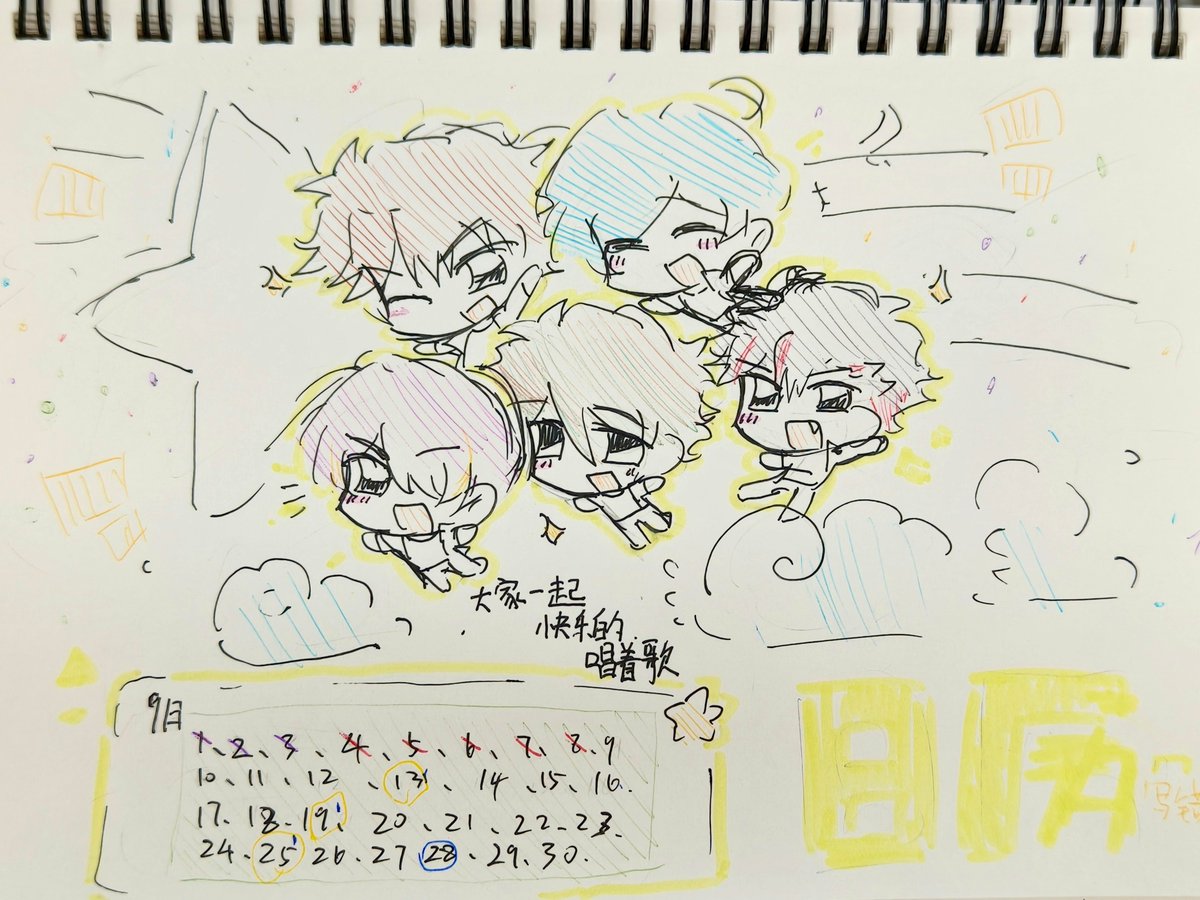 大家一起
快乐的
唱着歌
9日
1、2、3、4、5、6、7、8、9
10、11、12、13、14、15、16.
17、18、19、20、21、22、23.
24、25、26、27、28、29、30.
日历
写错